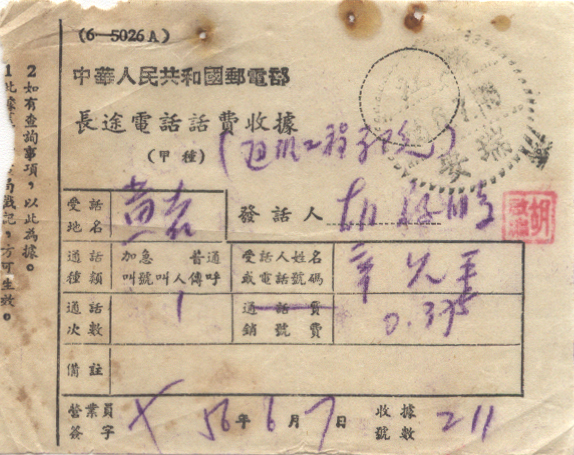 (6—5026A)
中華人民共和國郵電部
長途電話話費收據
(甲種)
受話地名 黄岩 發話人
通話種類 加急 普通 叫號 叫人 傳呼 受話人姓名或電話號碼
通話次數 1 通話費 銷號費 0.375
備註
營業員簽字 56年6月7日 收據號數 211
2 如有查詢事項，以此為據。
1 此據 局戳記，方可生效。
瑞安
胡